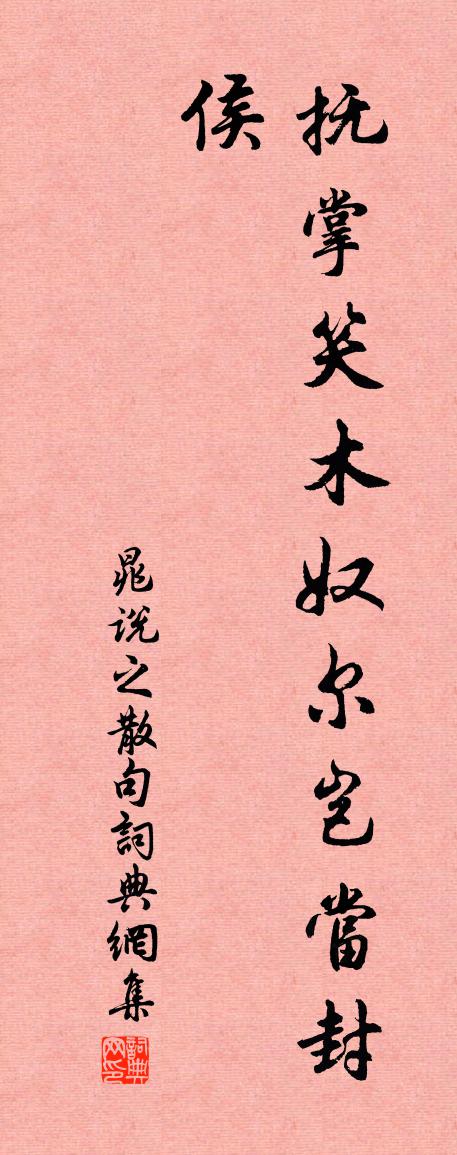 抚掌笑木奴尔岂當封
侯
晁说之散句詞典網集
詞典
网印